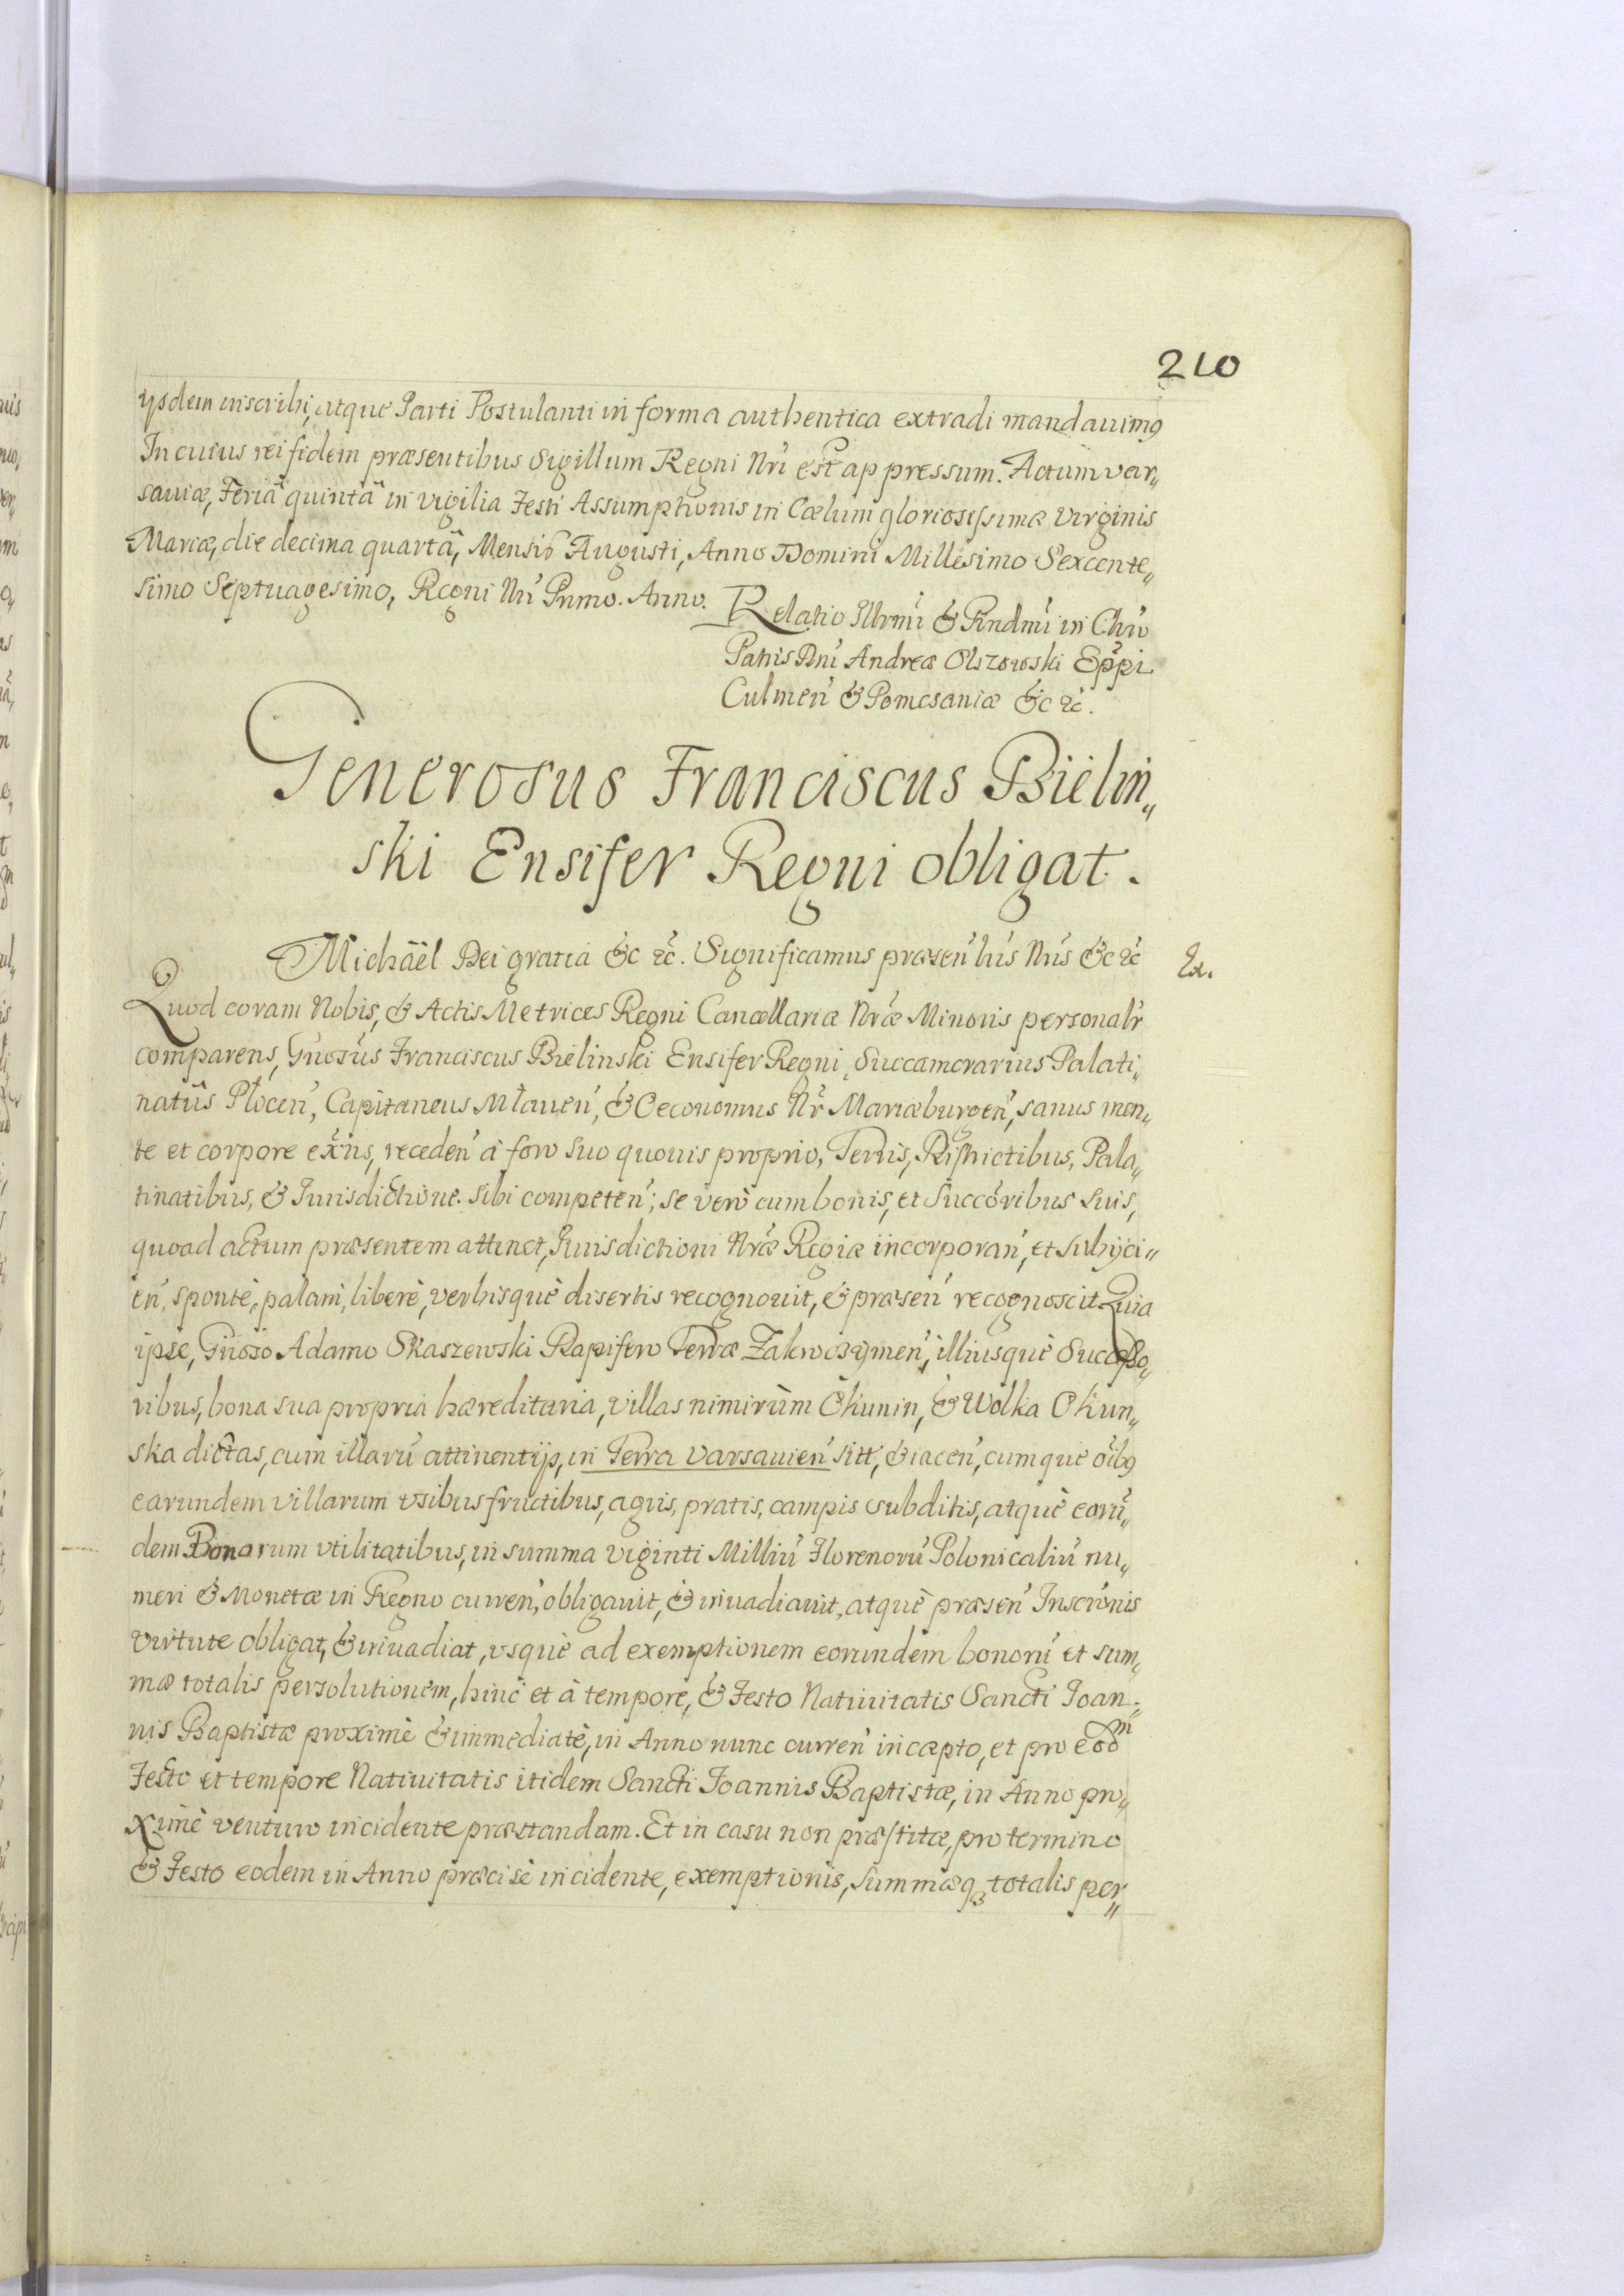 210
ysdem inscribi, atque Parti Postulanti in forma authentica extradi mandauimꝰ
In cuius rei fidem præsentibus Sigillum Regni Nri est appressum. Actum Var„
sauiæ, Feriâ quintâ in vigilia Festi Assumptionis in Cœlum gloriosissimæ Virginis
Mariæ, die decima quartâ, Mensis Augusti, Anno Domini Millesimo Sexcente„
simo Septuagesimo, Regni Nri Primo. Anno.
Relatio Illrmi & Rndmi in Chro
Patris Dni Andreæ Olszowski Eppi
Culmen & Pomesaniæ &c &c.
Generosus Franciscus Bielin„
ski Ensifer Regni obligat.
Michäel Dei gratia &c &c. Significamus præsen his Nris &c &c
Ex.
Quod coram Nobis, & Actis Metrices Regni Cancellariæ Nræ Minoris personalr
comparens, Gnosus Franciscus Bielinski Ensifer Regni, Succamerarius Palati„
natûs Płocen, Capitaneus Młauen, & Oeconomus Nr Mariæburgen, sanus men„
te et corpore exns, receden à foro suo quouis proprio, Terris, Districtibus, Pala„
tinatibus, & Iurisdictione sibi competen; se verò cum bonis, et Succoribus suis,
quoad actum præsentem attinet, Iurisdictioni Nræ Regiæ incorporan, et subijci„
en, spontè, palam, liberè, verbisquè disertis recognouit, & præsen recognoscit. Quia
ipse, Gnoso Adamo Skaszewski Dapifero Terræ Zakroczymen, illiusquè Successo„
ribus, bona sua propria hæreditaria, villas nimirùm Okunin, & Wolka Okun„
ska dictas, cum illaru attinentijs, in Terra Varsauien sitt, & iacen, cumque oibꝰ
earundem villarum vsibus fructibus, agris, pratis, campis subditis, atquè coru„
dem Bonorum vtilitatibus, in summa viginti Milliu Florenoru Polonicaliu nu„
meri & Monetæ in Regno curren, obligauit, & inuadiauit, atquè præsen Inscronis
virtute obligat, & inuadiat, vsquè ad exemptionem eorundem bonoru et sum„
mæ totalis persolutionem, hinc et à tempore, & Festo Natiuitatis Sancti Ioan„
nis Baptistæ proximè & immediatè, in Anno nunc curren incæpto, et pro eodm
Festo et tempore Natiuitatis itidem Sancti Ioannis Baptistæ, in Anno pro„
ximè venturo incidente præstandam. Et in casu non præstitæ, pro termino
& Festo eodem in Anno præcisè incidente, exemptionis, summæq₃ totalis per„